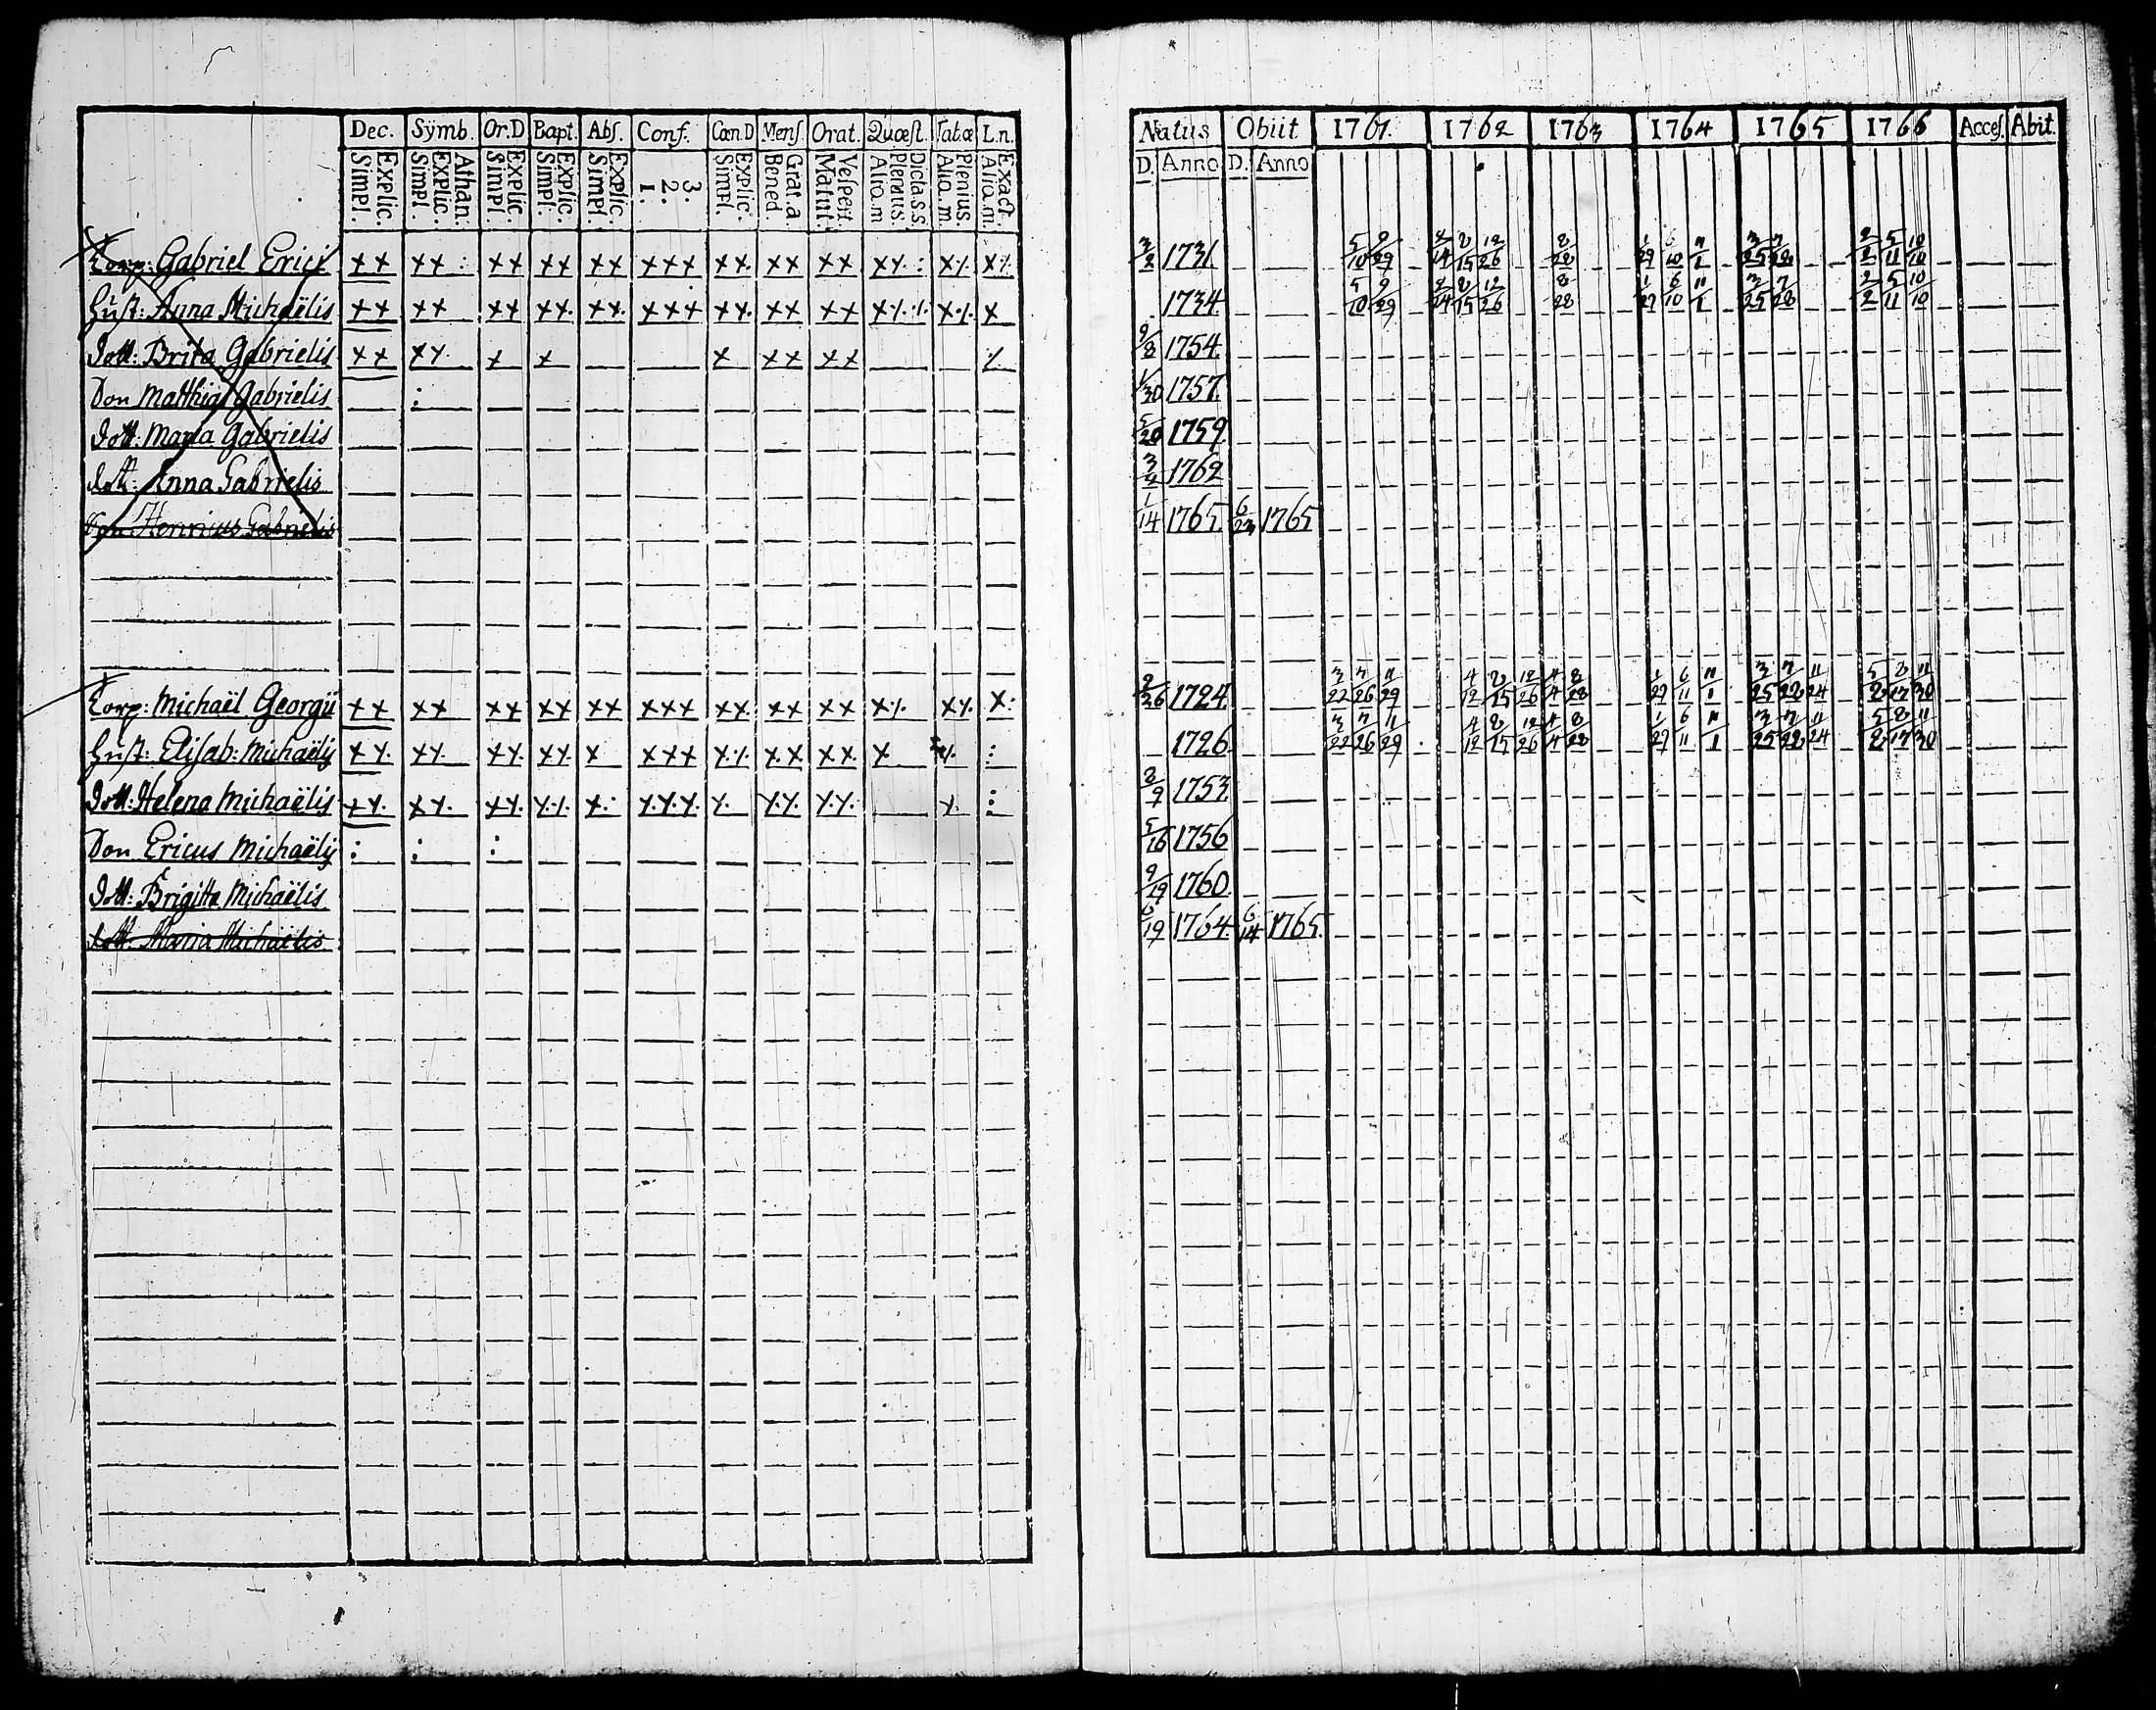 Dec. Sÿmb. Or.D Bapt. Abſ. Conf. Cœn.D Menſ Orat. Quœſt. Tabæ L.n.
Explic. Simpl. Athan: Explic. Simpl. Explic. Simpl. Explic. Simpl. Explic. Simpl. 3. 2. 1. Explic. Simpl. Grat.a Bened. Veſpert Matut. Dicta.s.s. Plenius. Alio.m Plenius. Alia.m. Exact. Alia.m.
Corp: Gabriel Erici
Huſt: Anna Michaëlis
Dott: Brita Gabrielis
Son Matthias Gabrielis
Dott: Maria Gabrielis
dott: Anna Gabrielis
Son Henricus Gabrielis
Corp: Michaël Georgii
Huſt: Eliſab: Michaëlis
Dott: Helena Michaëlis
Son Ericus Michaëlis
Dott: Brigitta Michaëlis
dott: Maria Michaëlis
Natus Obiit 1761. 1762 1763 1764 1765 1766 Acceſ. Abit.
D. Anno D. Anno
3/2 1731 5/10 9/29 2/14 8/15 12/26 8/28 1/29 6/10 11/1 3/25 7/28 2/2 5/11 10/10
1734 5/10 9/29 2/14 8/15 12/26 8/28 1/29 6/10 11/1 3/25 7/28 2/2 5/11 10/10
9/8 1754
1/30 1757.
5/20 1759
3/2 1762
1/14 1765. 6/23 1765
2/26 1724 3/22 7/26 11/29 4/12 8/15 12/26 4/4 8/28 1/29 6/11 11/1 3/25 7/28 11/24 5/2 8/17 11/30
1726 3/22 7/26 11/29 4/12 8/15 12/26 4/4 8/28 1/29 6/11 11/1 3/25 7/28 11/24 5/2 8/17 11/30
8/9 1753
5/16 1756
9/19 1760
6/19 1764. 6/14 1765.